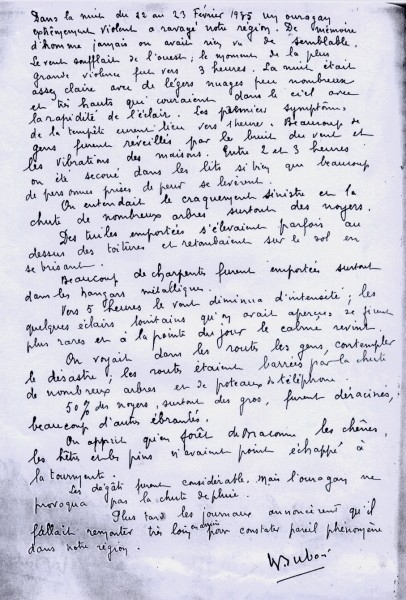 Dans la nuit du 22 au 23 Février 1935 un ouragan
extrêmement violent a ravagé notre région. De mémoire
d'homme jamais on avait rien vu de semblable.
Le vent soufflait de l'ouest ; le moment de la plus
grande violence fut vers 3 heures. La nuit était
assez claire avec de légers nuages peu nombreux
et très hauts qui couraient dans le ciel avec
la rapidité de l'éclair. Les premiers symptômes
de la tempête eurent lieu vers 1 heure. Beaucoup de
gens furent réveillés par le bruit du vent et
les vibrations des maisons. Entre 2 et 3 heures
on été secoué dans les lits si bien que beaucoup
de personnes prises de peur se levèrent.
On entendait le craquement sinistre et la
chute de nombreux arbres surtout des noyers.
Des tuiles emportées s'élevaient parfois au
dessus des toitures et retombaient sur le sol en
se brisant.
Beaucoup de charpents furent emportées surtout
dans les hangars métallique.
Vers 5 heures le vent diminua d'intensité ; les
quelques éclairs lointains qu'on avait aperçus se firent
plus rares et à la pointe du jour le calme revint.
On voyait dans les routs les gens, contempler
le désastre ; les routs étaient barrées par la chute
de nombreux arbres et de poteaux de téléphone.
50% des noyers, surtout des gros, furent déracinés,
beaucoup d'autres ébranlés.
On apprit qu'en forêt de Braconne les chênes,
les hêtres et les pins n'avaient point échappé à
la tourmente.
Les dégâts furent considérable, mais l'ouragan ne
provoqua pas la chute de pluie.
Plus tard les journaux annoncèrent qu'il
fallait remonter très loin en arrière pour constater pareil phénomène
dans notre région.